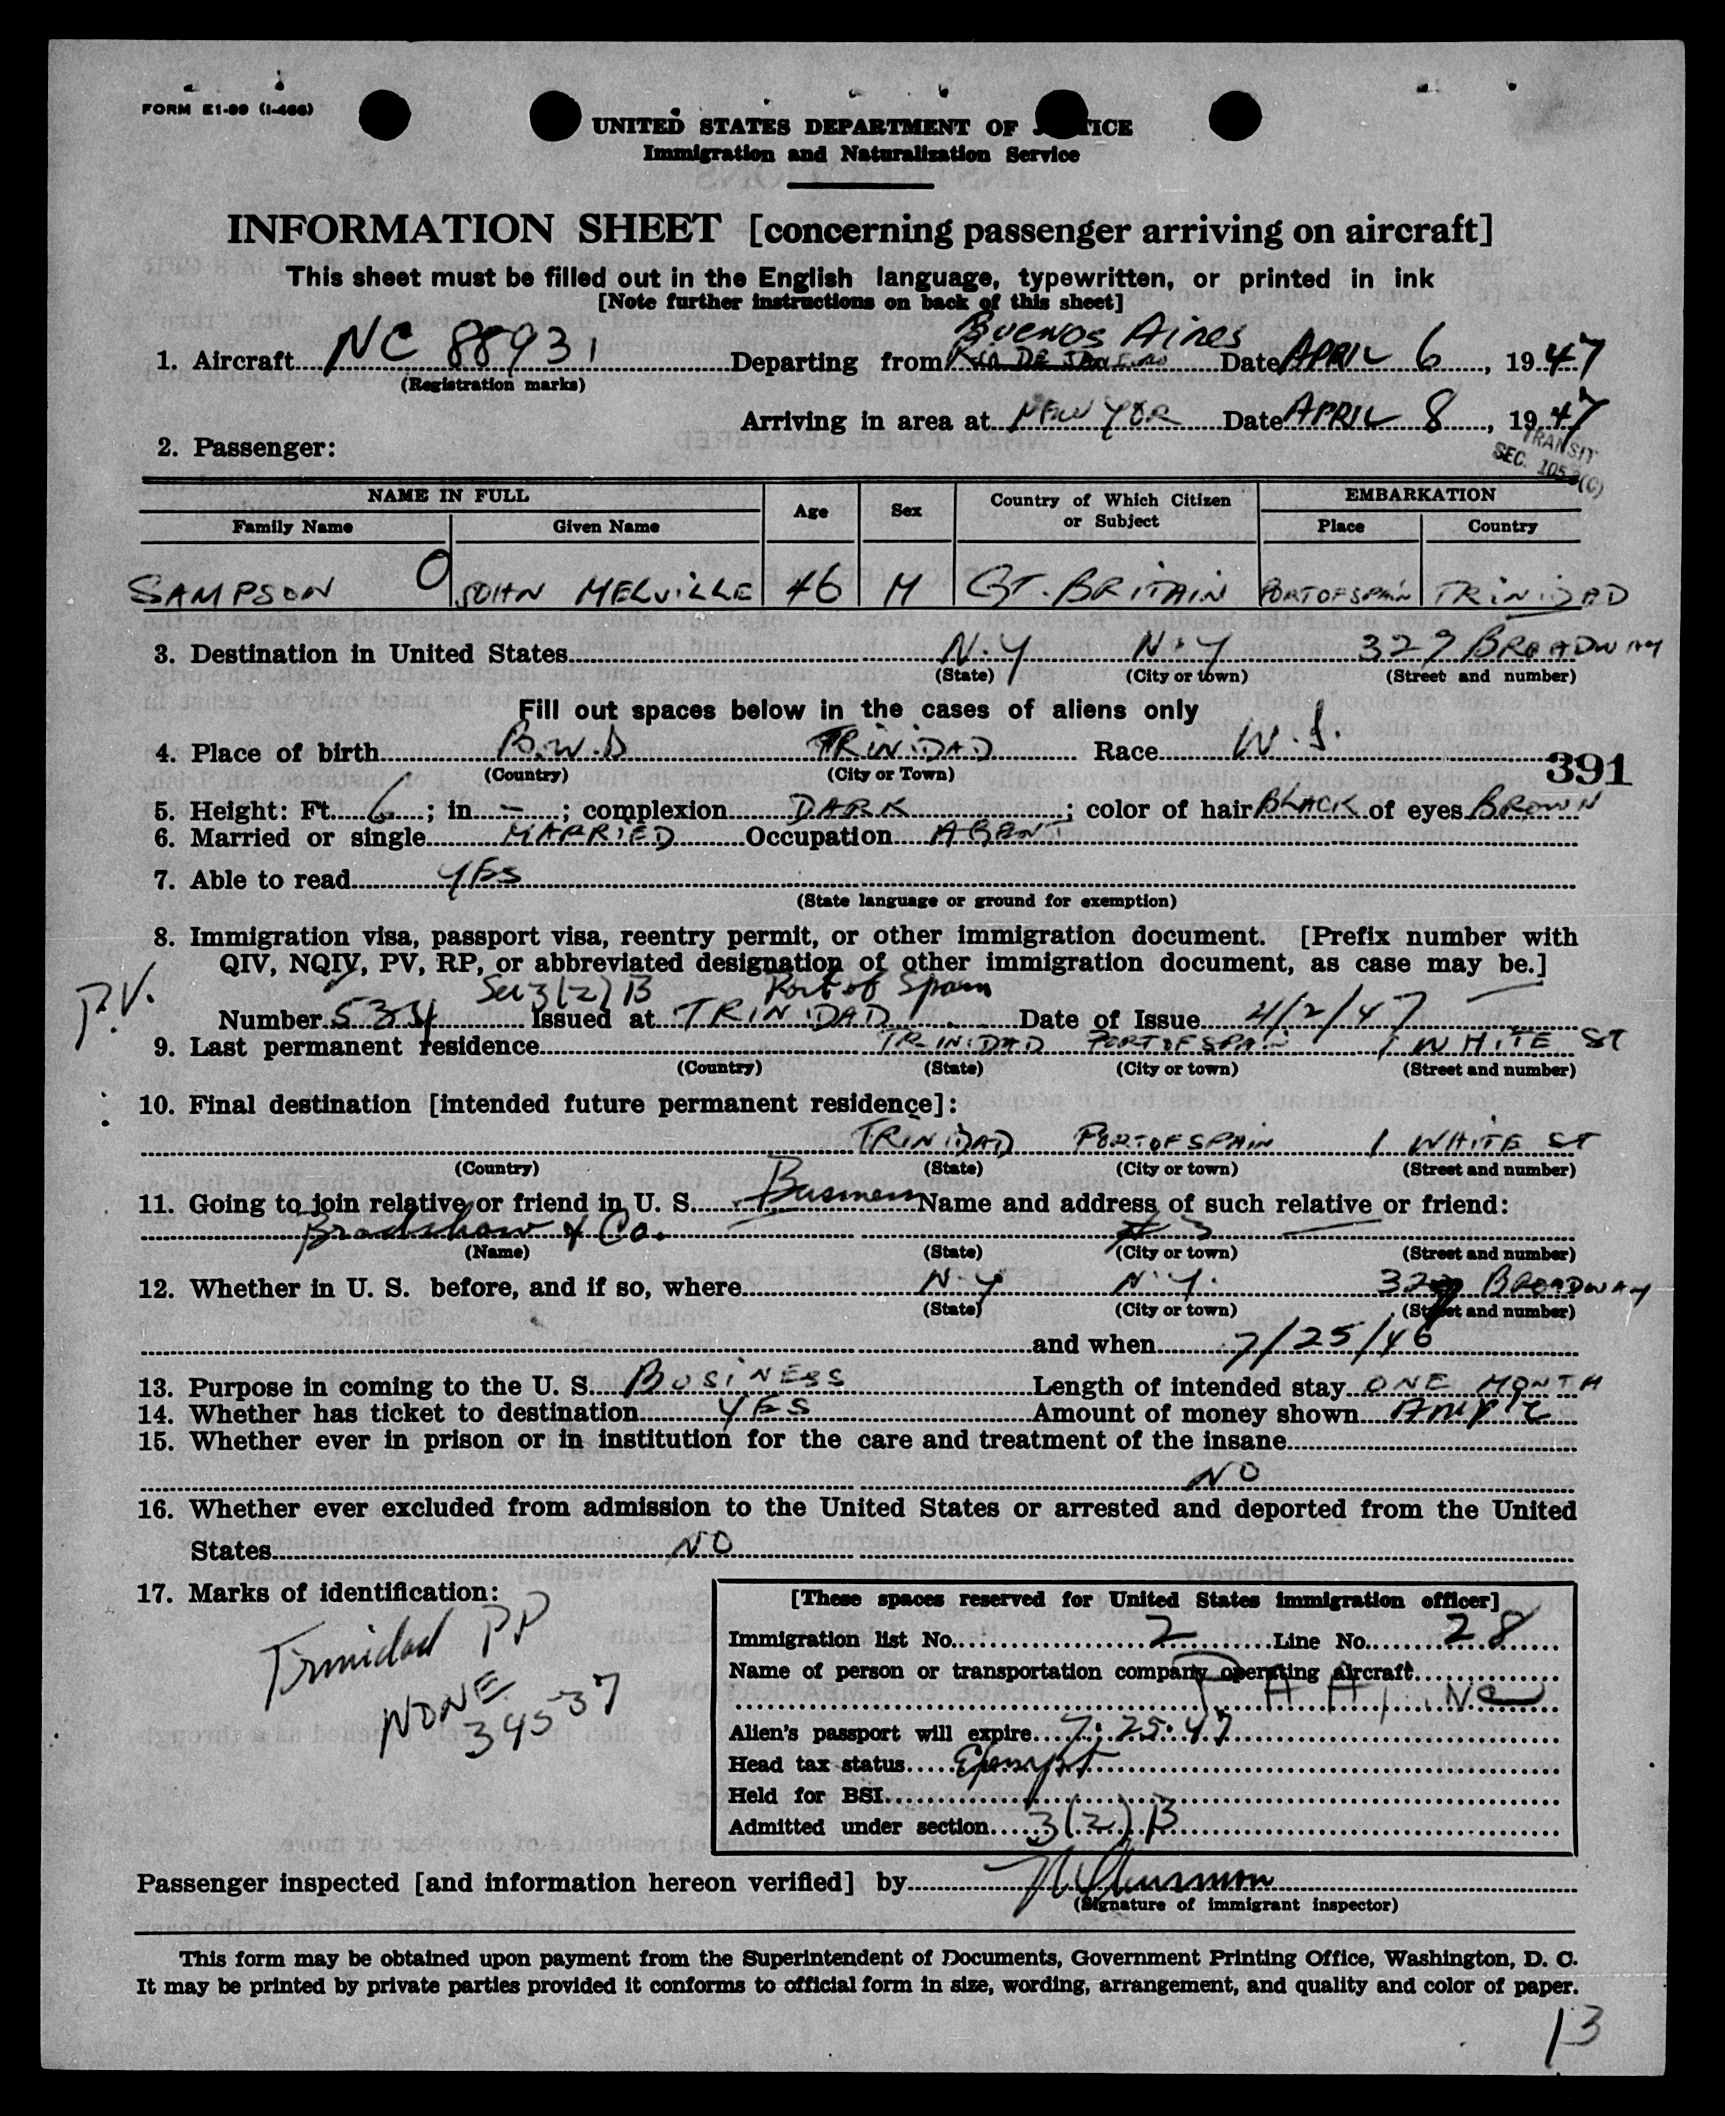 FORM E1-99 (I-466)
UNITED STATES DEPARTMENT OF JUSTICE
Immigration and Naturalization Service
INFORMATION SHEET [concerning passenger arriving on aircraft]
This sheet must be filled out in the English language, typewritten, or printed in ink
[Note further instructions on back of this sheet]
Buenos Aires
1. Aircraft NC 88931 Departing from RIO DE JANEIRO Date APRIL 6, 1947
(Registration marks)
Arriving in area at NEW YOR Date APRIL 8, 1947
2. Passenger:
TRANSIT
SEC. 105.3(C)
NAME IN FULL Age Sex Country of Which Citizen or Subject EMBARKATION
Family Name Given Name Place Country
SAMPSON O JOHN MELVILLE 46 M GT. BRITAIN PORTOFSPAIN TRINIDAD
3. Destination in United States N.Y N.Y 329 BROADWAY
(State) (City or town) (Street and number)
Fill out spaces below in the cases of aliens only
4. Place of birth B.W.D TRINIDAD Race W.I.
(Country) (City or Town)
391
5. Height: Ft. 6; in. -; complexion DARK; color of hair BLACK of eyes BROWN
6. Married or single MARRIED Occupation AGENT
7. Able to read YES
(State language or ground for exemption)
8. Immigration visa, passport visa, reentry permit, or other immigration document. [Prefix number with
QIV, NQIV, PV, RP, or abbreviated designation of other immigration document, as case may be.]
P.V. Sec 3(2)B Port of Spain
Number 534 Issued at TRINIDAD Date of Issue 4/2/47
9. Last permanent residence TRINIDAD PORTOFSPAIN 1 WHITE ST
(Country) (State) (City or town) (Street and number)
10. Final destination [intended future permanent residence]:
TRINIDAD PORTOFSPAIN 1 WHITE ST
(Country) (State) (City or town) (Street and number)
11. Going to join relative or friend in U. S. Business Name and address of such relative or friend:
Bradshaw & Co. # 3
(Name) (State) (City or town) (Street and number)
12. Whether in U. S. before, and if so, where N.Y N.Y. 329 BROADWAY
(State) (City or town) (Street and number)
and when 7/25/46
13. Purpose in coming to the U. S. BUSINESS Length of intended stay ONE MONTH
14. Whether has ticket to destination YES Amount of money shown Ample
15. Whether ever in prison or in institution for the care and treatment of the insane
NO
16. Whether ever excluded from admission to the United States or arrested and deported from the United
States NO
17. Marks of identification:
Trinidad PP
NONE
34537
[These spaces reserved for United States immigration officer]
Immigration list No. 2 Line No. 28
Name of person or transportation company operating aircraft
P A A, Nc
Alien's passport will expire 7:25:47
Head tax status Exempt
Held for BSI
Admitted under section 3(2)B
Passenger inspected [and information hereon verified] by
(Signature of immigrant inspector)
This form may be obtained upon payment from the Superintendent of Documents, Government Printing Office, Washington, D. C.
It may be printed by private parties provided it conforms to official form in size, wording, arrangement, and quality and color of paper.
13